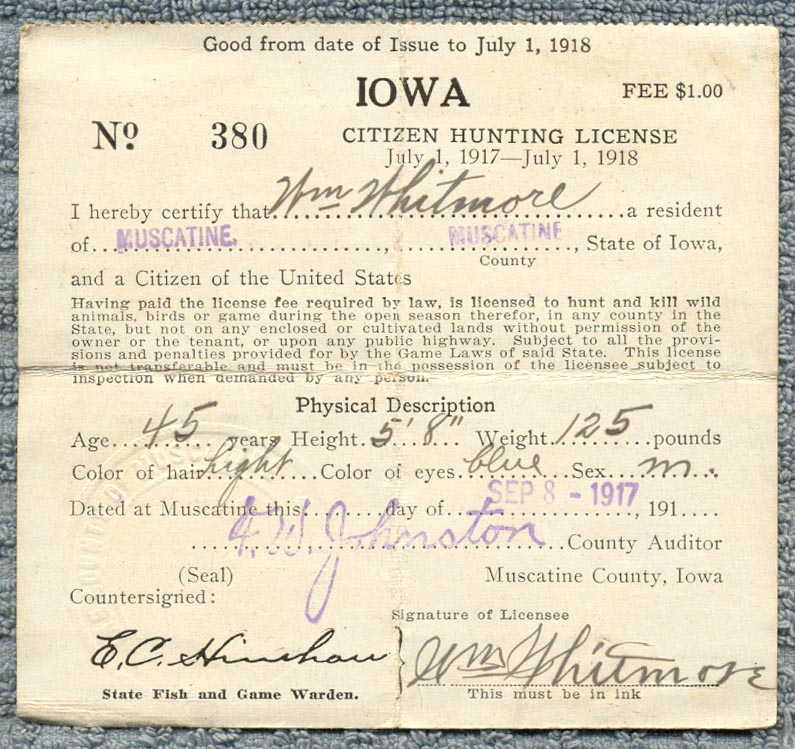 Good from date of Issue to July 1, 1918
IOWA
FEE $1.00
No. 380
CITIZEN HUNTING LICENSE
July 1, 1917—July 1, 1918
I hereby certify that Wm Whitmore a resident
of MUSCATINE, , MUSCATINE , State of Iowa,
County
and a Citizen of the United States
Having paid the license fee required by law, is licensed to hunt and kill wild
animals, birds or game during the open season therefor, in any county in the
State, but not on any enclosed or cultivated lands without permission of the
owner or the tenant, or upon any public highway. Subject to all the provi-
sions and penalties provided for by the Game Laws of said State. This license
is not transferable and must be in the possession of the licensee subject to
inspection when demanded by any person.
Physical Description
Age 45 years Height 5'8" Weight 125 pounds
Color of hair light Color of eyes blue Sex m.
Dated at Muscatine this day of SEP 8 - 1917, 191
F. W. Johnston County Auditor
(Seal) Muscatine County, Iowa
Countersigned:
Signature of Licensee
E. C. Hinshaw Wm Whitmore
State Fish and Game Warden. This must be in ink